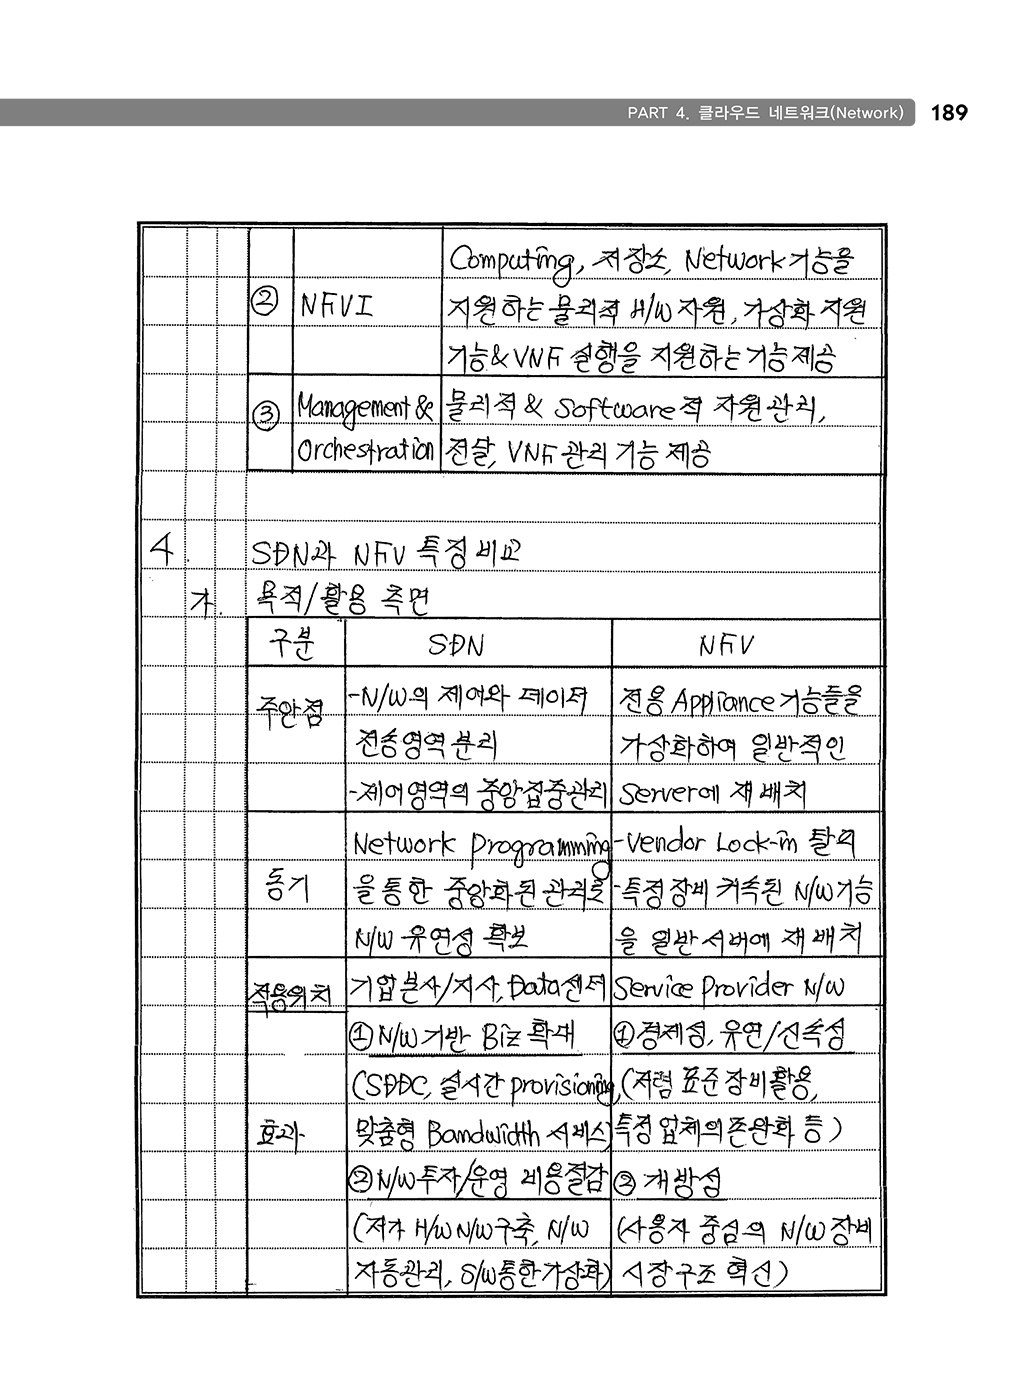 PART 4. 클라우드 네트워크(Network) 189
Computing, 저장소, Network 기능을
② NFVI 지원하는 물리적 H/W 자원, 가상화 지원
기능 & VNF 실행을 지원하는 기능 제공
③ Management & 물리적 & Software적 자원관리,
Orchestration 전달, VNF 관리 기능 제공
4. SDN과 NFV 특징 비교
가. 목적/활용 측면
구분 SDN NFV
주안점 -N/W의 제어와 데이터 전용 Appliance 기능들을
전송영역 분리 가상화하여 일반적인
-제어영역의 중앙집중관리 Server에 재배치
Network Programming -Vendor Lock-in 탈피
동기 을 통한 중앙화된 관리로 -특정장비 귀속된 N/W기능
N/W 유연성 확보 을 일반서버에 재배치
적용위치 기업본사/지사, Data센터 Service Provider N/W
①N/W기반 Biz 확대 ①경제성, 유연/신속성
(SDDC, 실시간 provisioning, (저렴 표준장비활용,
효과 맞춤형 Bandwidth 서비스) 특정업체의존완화 등)
②N/W투자/운영 비용절감 ② 개방성
(저가 H/W N/W구축, N/W (사용자 중심의 N/W장비
자동관리, S/W통한가상화) 시장구조 혁신)